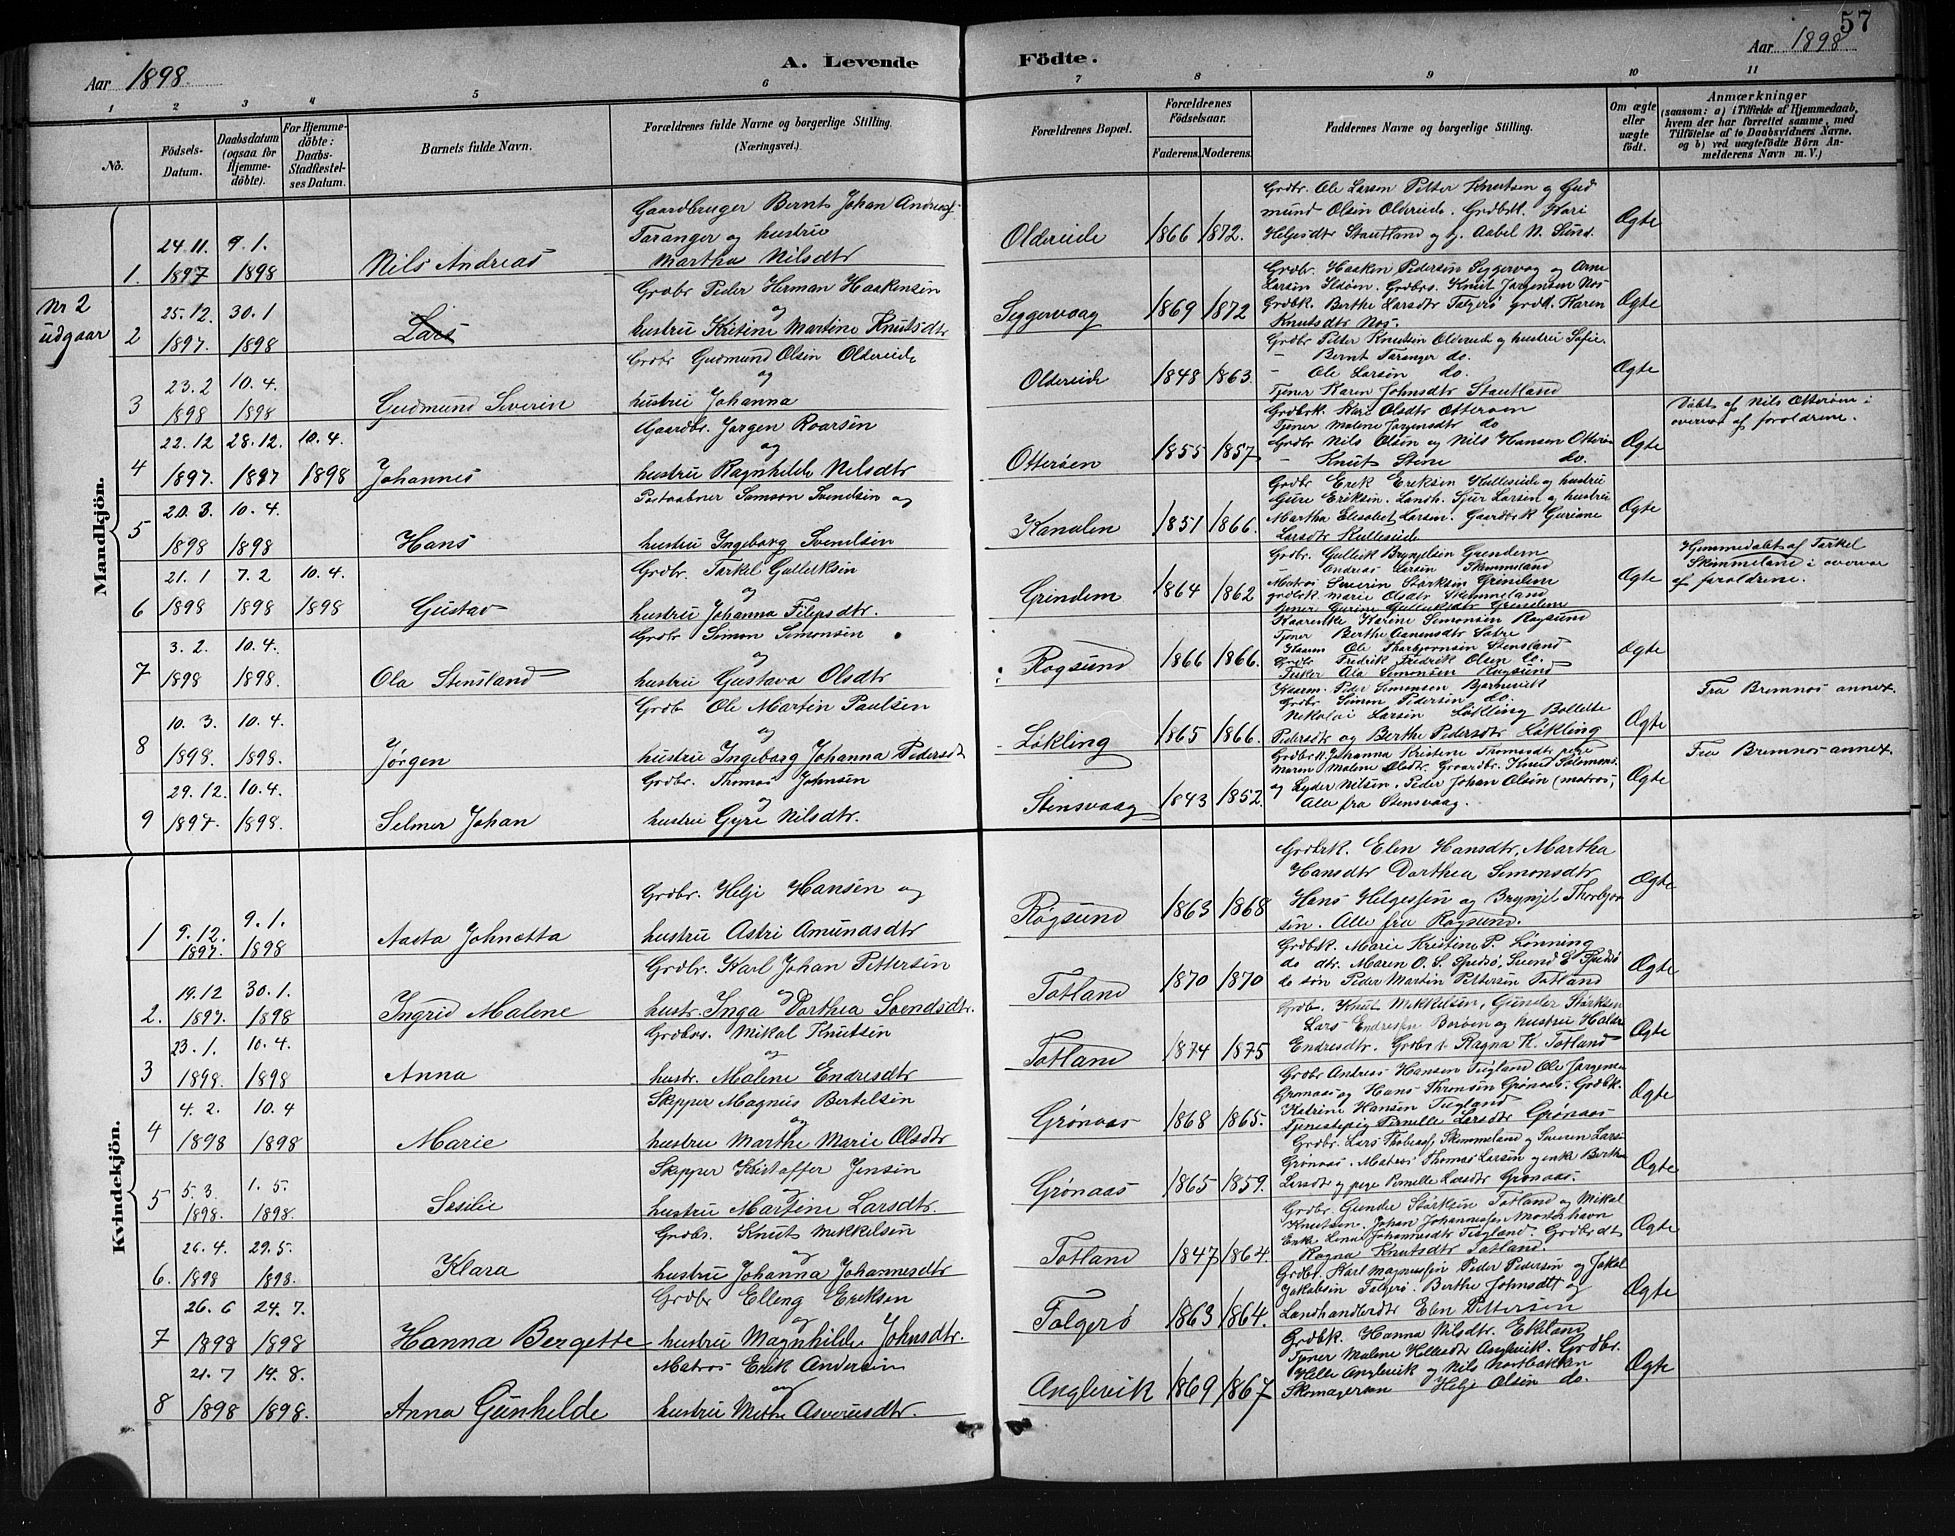 57
Aar 1898.
A. Levende Födte.
Aar 1898
1 2 3 4 5 6 7 8 9 10 11
No.
Födsels-Datum.
Daabsdatum (ogsaa for Hjemme-döbte).
For Hjemme-döbte: Daabs-Stadfestel-ses Datum.
Barnets fulde Navn.
Forældrenes fulde Navne og borgerlige Stilling. (Næringsvei.)
Forældrenes Bopæl.
Forældrenes Födselsaar.
Faderens. Moderens.
Faddernes Navne og borgerlige Stilling.
Om ægte eller uægte födt.
Anmærkninger
(saasom: a) i Tilfælde af Hjemmedaab, hvem der har forrettet samme, med Tilföielse af to Daabsvidners Navne. og b) ved uægtefödte Börn An-melderens Navn m. V.)
Mandkjön.
Gaardbruger Bernt Johan Andreas
Taranger og hustru
Martha Nilsdtr
1. 24.11. 1897 9.1. 1898 Nils Andreas
Oldereide 1866 1872.
Grdbr. Ole Larsen Petter Knutsen og Gud
mund Olsen Oldereide. Grdbst. Kari
Helgesdtr Stautland og tj. Aabel N.
Ægte
Nr 2
udgaar
2 25.12. 1897. 30.1 1898 Lars
Grdbr Peder Herman Haakensen
og
hustru Kristine Martine Knutsdtr
Seggervaag 1869 1872
Grdbr. Haaken Pedersen Seggervaag og Arne
Knut Jørgensen
Grdbk. Berthe Larsdtr Folgerø grdk. Karen
Knutsdtr
Ægte
3 23.2 1898 10.4. 1898 Gudmund Severin
Grdbr Gudmund Olsen Oldereide
og
hustru Johanna
Oldereide 1848 1863.
Grdbr Petter Knutsen Oldereide og hustru Sofie.
- Bernt Taranger do.
- Ole Larsen do.
Tjener Karen Johnsdtr Stautland
Ægte
4 22.12 1897. 28.12. 1897 10.4. 1898 Johannes
Gaardbr. Jørgen Roarsen
og
hustru Ragnhilde Nilsdtr
Ottersen 1855 1857
Grdbrk. Kari Olsdtr
Tjener Malene Jørgensdtr do
Grdbr Nils Olsen og Nils Hansen
- Knut Stene do.
Ægte
Døbt af Nils Otterøen i
overvær af foreldrene.
5 20.3. 1898 10.4. 1898 Hans
Postaabner Samson Svendsen og
hustru Ingeborg Svendsen
Kanalen 1851 1866.
Grdbr Erek Ereksen Hulleseide og hustru
Gure Eriksen. Landh. Sjur Larsen og hustru
Martha Elisabet Larsen. Gaardbrk Guriane
Larsdtr
Ægte
6 21.1 1898 7.2 1898 10.4. 1898 Gustav
Grdbr. Tarkel Gulleiksen
og
hustru Johanna Filipsdtr.
Grindem 1864 1862
Grdbr. Gulleik Brynjelsen Grendem
Andreas Larsen Skimmeland
Matros Severin Størksen Grindem
grdbrk. Marie Olsdtr Skimmeland
Tjener Gurine Gulleiksdtr Grendem
Ægte
Hjemmedøbt af Tarkel
Skimmeland i overvær
af foreldrene.
7 3.2. 1898 10.4. 1898. Ola Stensland
Grdbr Simon Simonsen
og
hustru Gustava Olsdtr
Røgsund 1866 1866.
Kaarenke Karine Simonsen Røgsund
Tjener Berthe
Ole Tharbjørnsen Stensland
Grdbr Fredrik Fredrik Olsen do.
Fisker Ola Simonsen Røgsund
Ægte
8 10.3. 1898. 10.4. 1898. Jørgen
Grdbr Ole Martin Paulsen
og
hustru Ingeborg Johanna Pedersdtr
Løkling 1865 1866.
Peder Simonsen
Grdbr Simon Pedersen do
Nikolai Larsen Løkling Bollette
Pedersdtr og Berthe Pedersdtr Løkling
Ægte
Fra Bremnes annex.
9 29.12. 1897. 10.4. 1898. Selmer Johan
Grdbr. Thomas Johnsen
og
hustru Gyri Nilsdtr.
Stensvaag 1843 1852.
Grdbrk. Johanna Kristine Thomasdtr pige
Maren Malene Olsdtr. Graardbr. Knud Salomons.
og Lyder Nilsen, Peder Johan Olsen (matros,
Alle fra Stensvaag.
Ægte
Fra Bremnes annex.
Kvindekjön.
1 9.12. 1897. 9.1. 1898 Aasta Johnetta
Grdbr. Helje Hansen og
hustru Astri Amundsdtr
Røgsund 1863 1868
Grdbrk. Elen Hansdtr, Martha
Hansdtr Dorthea Simonsdtr
Hans Helgessen og Brynjel Thorbjør
sen. Alle fra Røgsund.
Ægte
2. 19.12 1897. 30.1. 1898 Ingrid Malene
Grdbr. Karl Johan Pettersen
og
hustr. Inga Dorthea Svendsdtr.
Totland 1870 1870
Grdbk. Marie Kristine P. Lønning
do dtr. Maren O. S. Spidsø, Svend E Spidsø
do søn Peder Martin Pettersen Totland
Ægte
3 23.1. 1898. 10.4. 1898 Anna
Grdbrs. Mikal Knutsen
og
hustr. Malene Endresdtr
Totland 1874 1875
Grdbr. Knut Mikkelsen, Gunder Størksen
Lars Endresen Børøen og hustru
Endresdtr. Ragna K. Totland
Ægte
4 4.2. 1898 10.4 1898 Marie
Skipper Magnus Bertelsen
og
hustru Marthe Marie Olsdtr
Grønaas 1868 1865.
Grdbr Andreas Hansen Tugland Ole Jørgensen
Grønaas og Hans Thronsen Grønaas. Grdbk.
Katrine Hansen Tugland
Tjenestepig Pernille Larsdtr Grønaas
Ægte
5 5.3. 1898. 1.5. 1898. Sesilie
Skipper Kristoffer Jensen
og
hustru Martine Larsdtr.
Grønaas 1865 1859.
Grdbr. Lars Skimmeland og Severin Larsen
Grønaas. Matros Thomas Larsen og enk Berthe
Larsdtr og pige Pernille Larsdtr Grønaas.
Ægte
6. 26.4. 1898 29.5. 1898. Klara
Grdbr. Knut Mikkelsen
og
hustru Johanna Johannesdtr
Totland 1847 1864.
Grdbr. Gunder Størksen Totland og Mikal
Knutsen. Johan Johannessen Mosterhavn
Enke Lena Johannesdtr Tugland. Grdbr dtr
Ragna Knutsdtr Totland.
Ægte
7 26.6 1898 24.7. 1898 Hanna Bergette
Grdbr Elleng Ereksen
og
hustru Magnhilde Johnsdtr.
Folgerø 1863 1864.
Grdbr. Karl Magnussen Peder Pedersen og Jakob
Jakobsen Folgerø. Berthe Johnsdtr og
Landhandlerdtr Elen Pettersen
Ægte
8 21.7 1898 14.8. 1898. Anna Gunhilde
Matros Erik Andersen
og
hustru Mette Asverusdtr.
Anglevik 1869 1867
Grdbk. Hanna Nilsdtr. Ekland
Tjener Malene Hellesdtr Anglevik. Grdbr.
Helle Anglevik og Nils Nortbakken
Skomagersøn Helje Olsen do.
Ægte